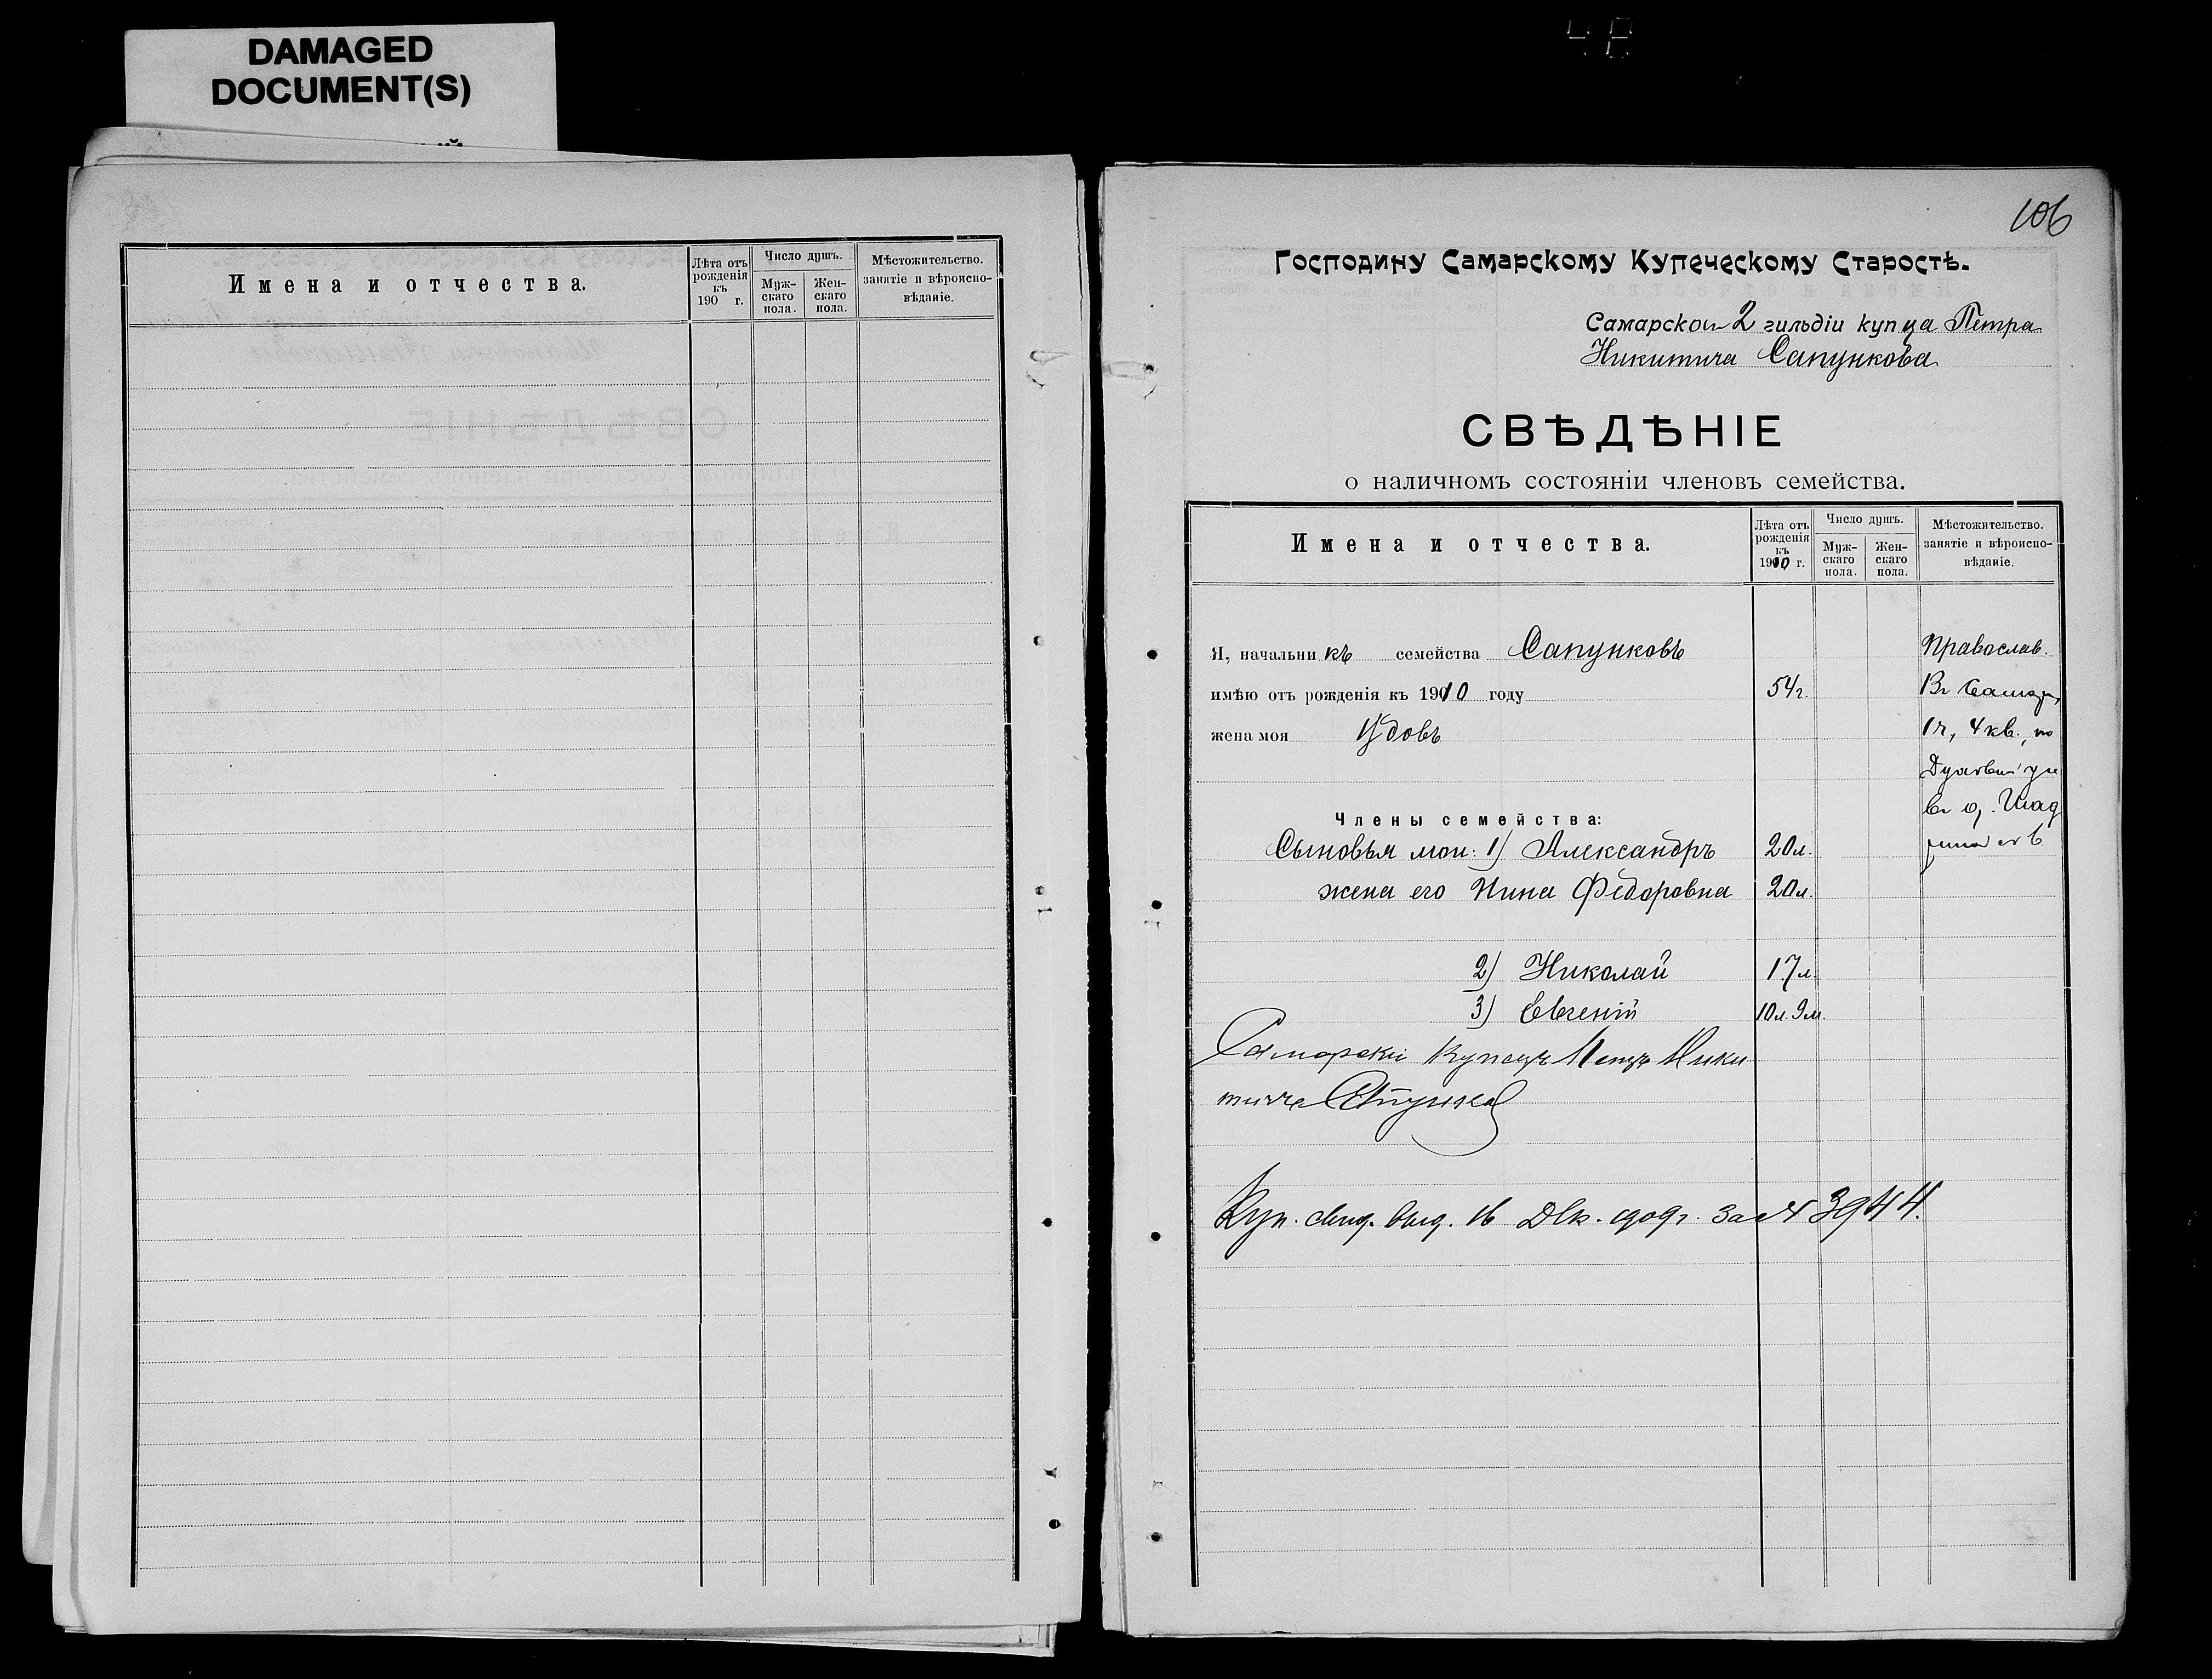 DAMAGED
DOCUMENT(S)
Имена и отчества.
Лѣта отъ рожденія къ 190 г.
Число душъ.
Муж-скаго пола.
Жен-скаго пола.
Мѣстожительство. занятіе и вѣроиспо-вѣданіе.
106
Господину Самарскому Купеческому Старостѣ.
Самарской 2 гильдіи купца Петра
Никитича Сапункова
СВѢДѢНІЕ
о наличномъ состояніи членовъ семейства.
Имена и отчества.
Лѣта отъ рожденія къ 1910 г.
Число душъ.
Муж-скаго пола.
Жен-скаго пола.
Мѣстожительство. занятіе и вѣроиспо-вѣданіе.
Я, начальникъ семейства Сапунковъ Православ.
имѣю отъ рожденія къ 1910 году 54г. Въ
жена моя Вдовъ 1ч, 4 кв., по
въ д.
Члены семейства:
Сыновья мои: 1) Александръ 20л.
жена его Нина Федоровна 20л.
2) Николай 17л.
3) Евгеній 10л. 9м.
Самарскій Купецъ Петръ Ники
тичъ Сапунков
Куп. свид. выд. 16 Дек. 1909г. за № 3944.